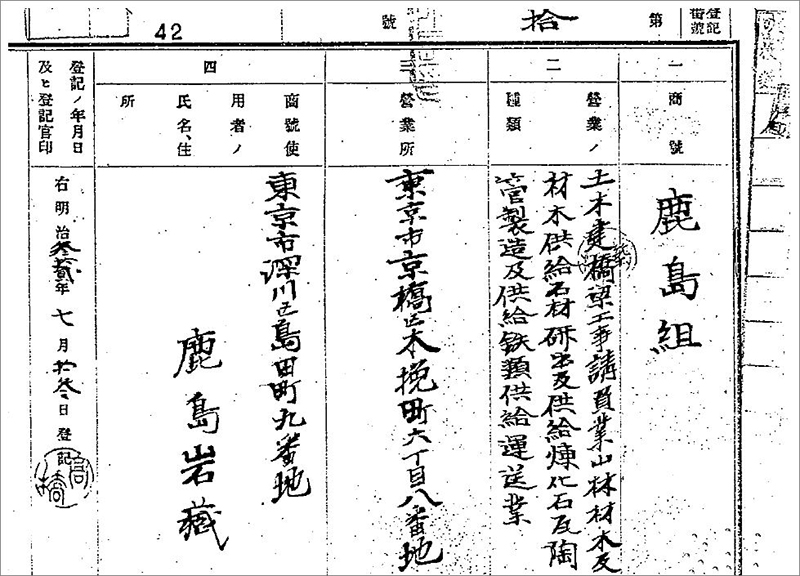 登記番號
第
拾
號
42
一
商號
鹿島組
二
營業ノ
種類
土木建橋梁工事請負業山林材木及
材木供給石材研出及供給煉化石瓦陶
管製造及供給鉄類供給運送業
三
營業所
東京市京橋区木挽町六丁目八番地
四
商號使
用者ノ
氏名、住
所
東京市深川区島田町九番地
鹿島岩藏
登記ノ年月日
及ヒ登記官印
右明治参拾貮年七月拾参日登記
高橋